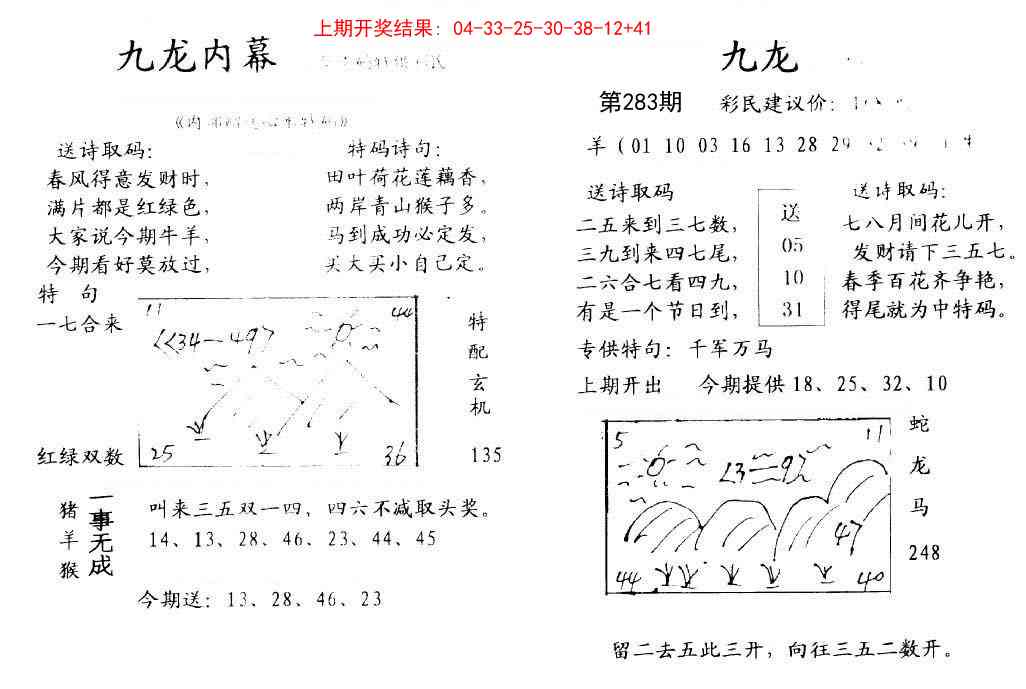 上期开奖结果：04-33-25-30-38-12+41
九龙内幕
送诗取码：
春风得意发财时，
满片都是红绿色，
大家说今期牛羊，
今期看好莫放过，
特码诗句：
田叶荷花莲藕香，
两岸青山猴子多。
马到成功必定发，
买大买小自己定。
特 句
一七合来
红绿双数
11
44
34—49
25
36
特
配
玄
机
135
猪
羊
猴
一事无成
叫来三五双一四，四六不减取头奖。
14、13、28、46、23、44、45
今期送：13、28、46、23
九龙
第283期 彩民建议价：
羊（01 10 03 16 13 28 29
送诗取码
二五来到三七数，
三九到来四七尾，
二六合七看四九，
有是一个节日到，
送
05
10
31
送诗取码：
七八月间花儿开，
发财请下三五七。
春季百花齐争艳，
得尾就为中特码。
专供特句：千军万马
上期开出 今期提供18、25、32、10
5
11
47
44
40
蛇
龙
马
248
留二去五此三开，向往三五二数开。